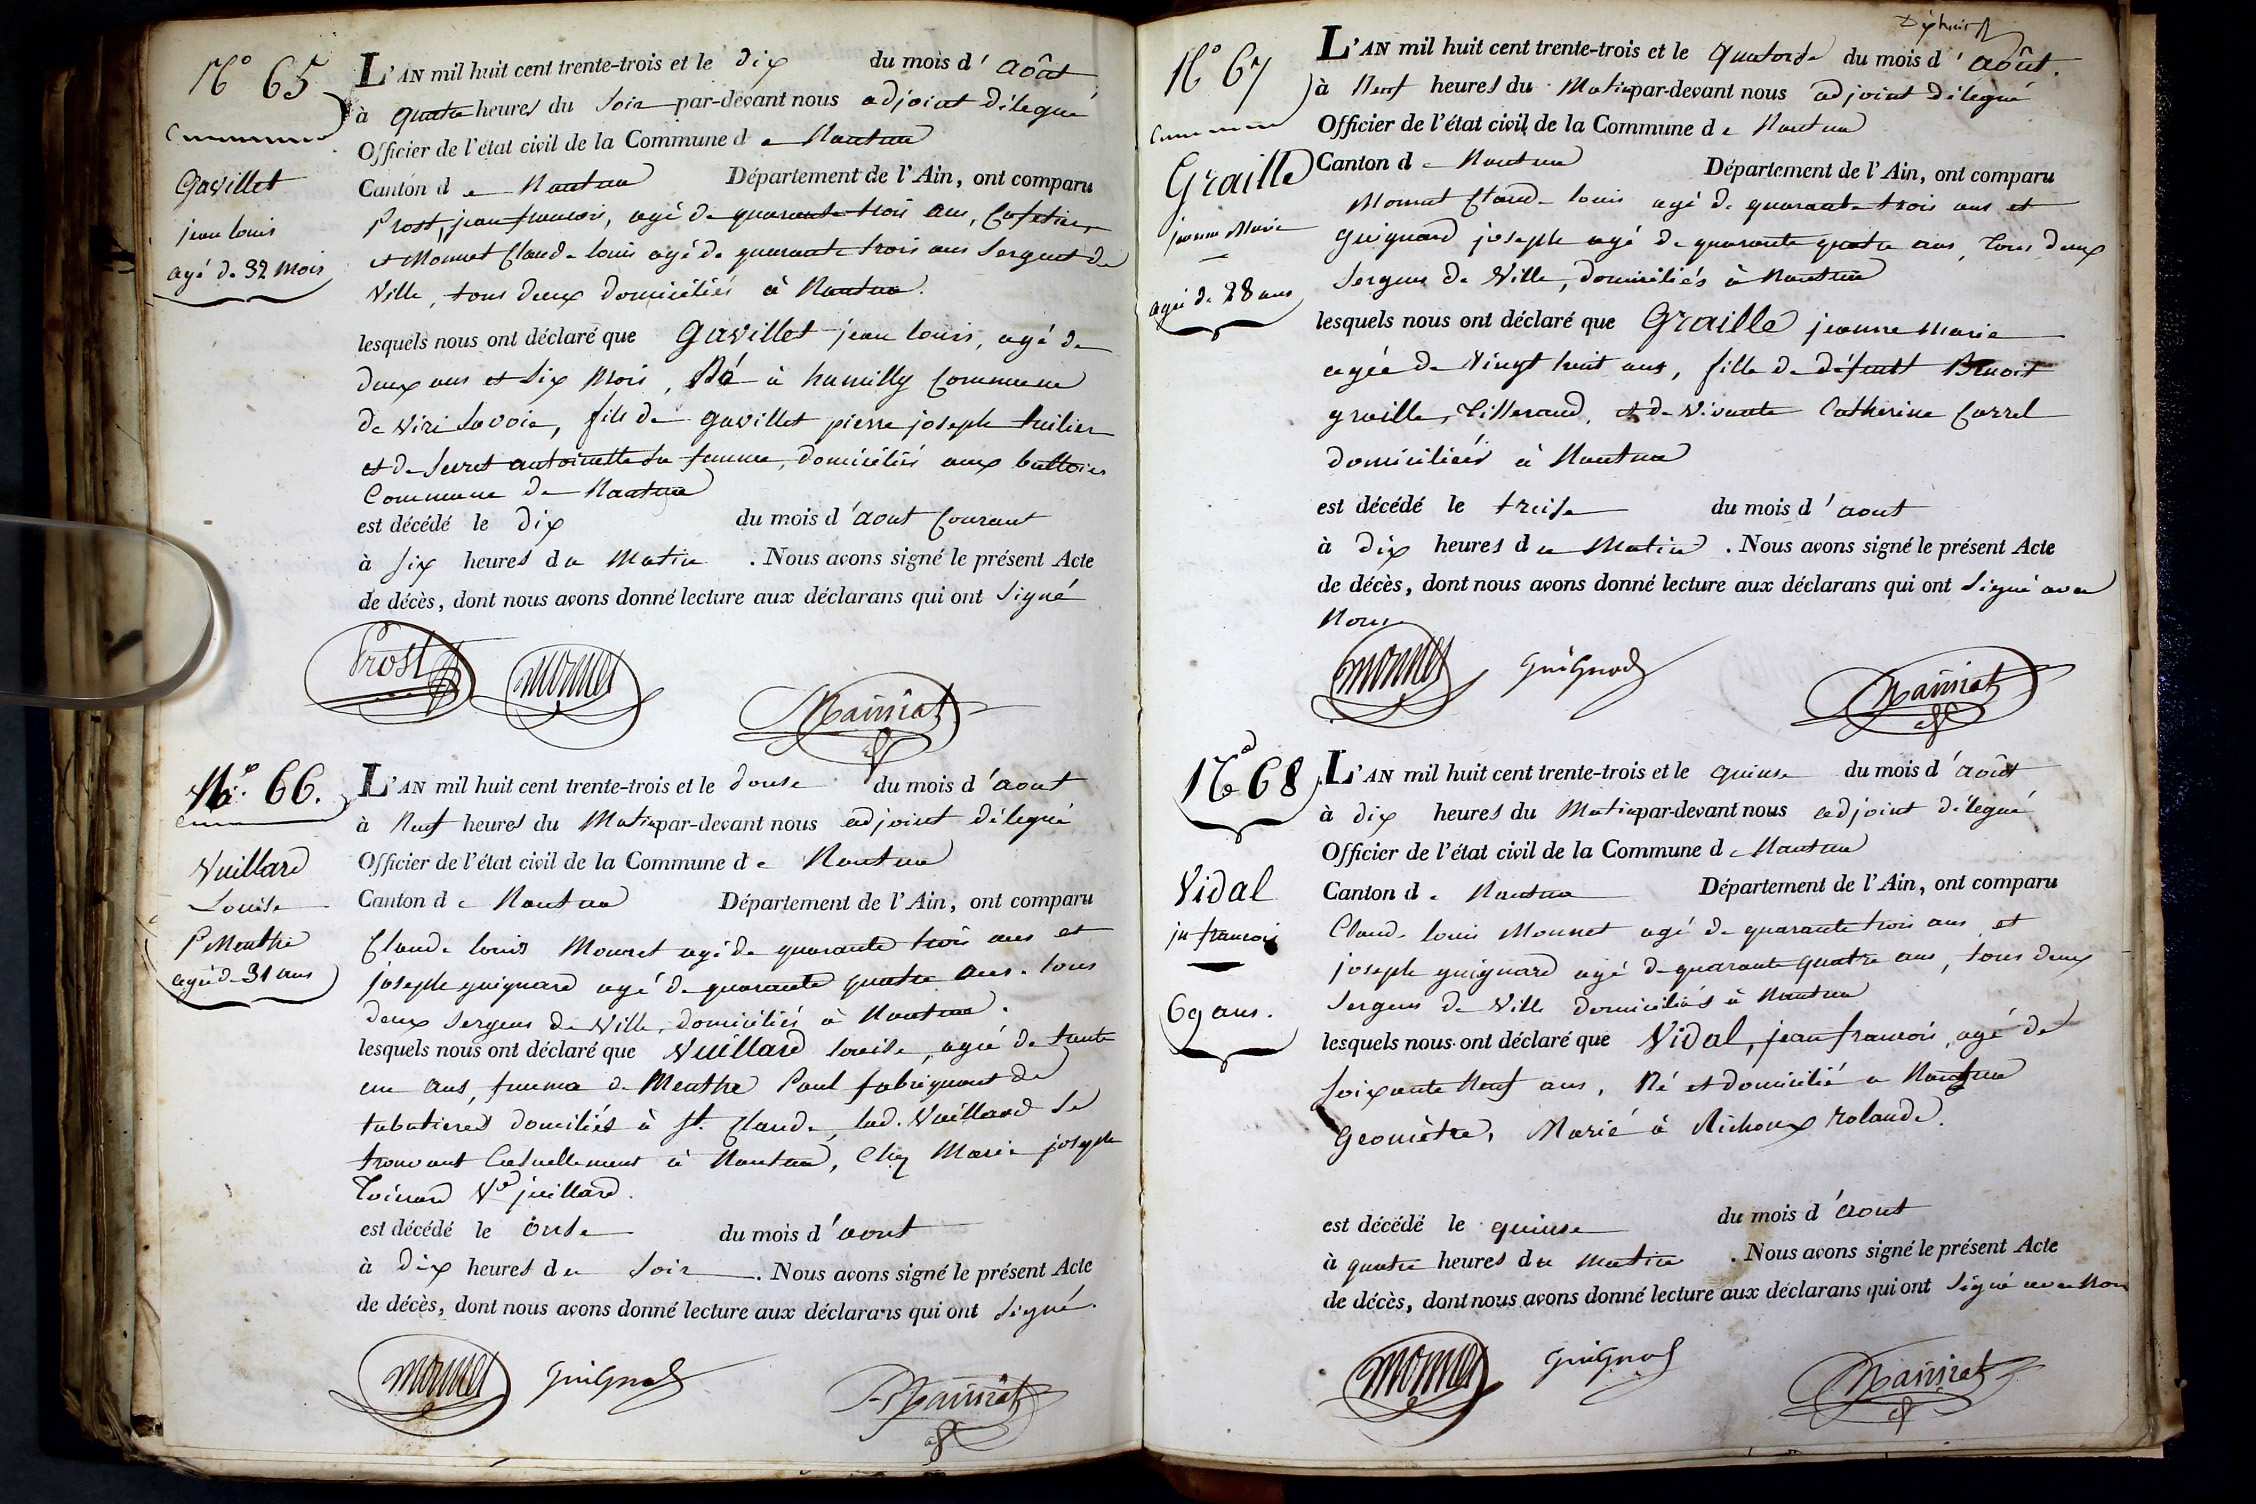 N° 65
Gavillet
jean louis
agé de 32 mois
L'AN mil huit cent trente-trois et le dix du mois d'août
à quatre heures du soir par-devant nous adjoint délegué
Officier de l'état civil de la Commune de Nantua
Canton de Nantua Département de l'Ain, ont comparu
Prost, jean francois, agé de quarante trois ans, Cafetier,
et Monnet Claude louis agé de quarante trois ans Sergent de
Ville, tous deux domiciliés à Nantua.
lesquels nous ont déclaré que Gavillet jean louis, agé de
deux ans et six mois, Né à humilly Commune
de Viri Savoie, fils de gavillet pierre joseph tuilier
et de Secret antoinette sa femme, domiciliés aux battoirs
Commune de Nantua
est décédé le dix du mois d'aout Courant
à six heures du Matin. Nous avons signé le présent Acte
de décès, dont nous avons donné lecture aux déclarans qui ont signé
Prost monnet
N° 66.
Vuillard
Louise
f Menthe
agée de 31 ans
L'AN mil huit cent trente-trois et le douse du mois d'aout
à Neuf heures du Matin par-devant nous adjoint délegué
Officier de l'état civil de la Commune de Nantua
Canton de Nantua Département de l'Ain, ont comparu
Claude louis Monnet agé de quarante trois ans et
joseph guignard agé de quarante quatre ans. tous
deux sergens de Ville, domiciliés à Nantua.
lesquels nous ont déclaré que Vuillard louise, agée de trente
un ans, femme de Menthe Paul fabriquant de
tabatieres domiciliés à St. Claude, lad. Vuillard se
trouvant Casuellement à Nantua, Chez Marie joseph
Toinard Ve juillard.
est décédé le onse du mois d'aout
à dix heures du soir. Nous avons signé le présent Acte
de décès, dont nous avons donné lecture aux déclarans qui ont signé.
monnet GuiGnard
Dixhuit
N° 67
Graille
jeanne Marie
agée de 28 ans
L'AN mil huit cent trente-trois et le quatorse du mois d'août.
à Neuf heures du Matin par-devant nous adjoint délegué
Officier de l'état civil de la Commune de Nantua
Canton de Nantua Département de l'Ain, ont comparu
Monnet Claude louis agé de quarante trois ans et
guignard joseph agé de quarante quatre ans, tous deux
Sergens de Ville, domiciliés à Nantua
lesquels nous ont déclaré que Graille jeanne Marie
agée de vingt huit ans, fille de défunt Benoit
graille, Tisserand, et de vivante Catherine Carrel
domiciliées à Nantua
est décédé le treise du mois d'aout
à dix heures du Matin. Nous avons signé le présent Acte
de décès, dont nous avons donné lecture aux déclarans qui ont signé avec
Nous
monnet GuiGnard
N° 68
Vidal
jn francois
69 ans.
L'AN mil huit cent trente-trois et le quinse du mois d'août
à dix heures du Matin par-devant nous adjoint délegué
Officier de l'état civil de la Commune de Nantua
Canton de Nantua Département de l'Ain, ont comparu
Claude louis Monnet agé de quarante trois ans et
joseph guignard agé de quarante quatre ans, tous deux
sergens de Ville domiciliés à Nantua
lesquels nous ont déclaré que Vidal, jean francois, agé de
soixante Neuf ans, Né et domicilié a Nantua
Geomètre, Marié à Richoux rolande.
est décédé le quinse du mois d'aout
à quatre heures du matin. Nous avons signé le présent Acte
de décès, dont nous avons donné lecture aux déclarans qui ont signé avec Nous
monnet GuiGnard